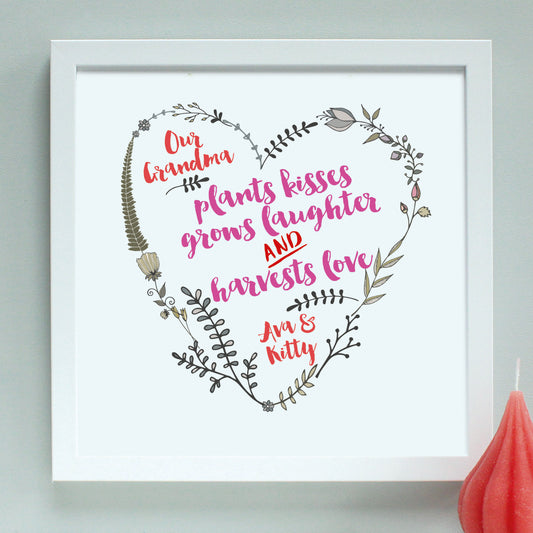 Our
Grandma
plants kisses
grows laughter
AND
harvests love
Ava &
Kitty